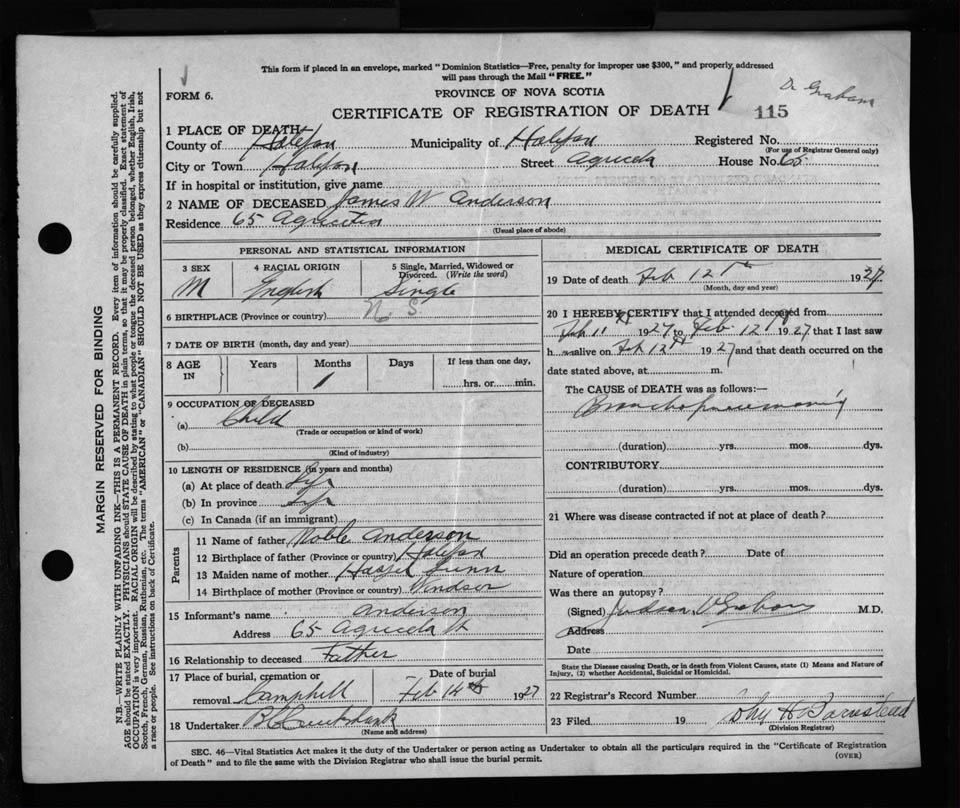 This form if placed in an envelope, marked "Dominion Statistics—Free, penalty for improper use $300," and properly addressed
will pass through the Mail "FREE."
FORM 6.
PROVINCE OF NOVA SCOTIA
Dr Graham
CERTIFICATE OF REGISTRATION OF DEATH
115
1 PLACE OF DEATH
County of Halifax Municipality of Halifax Registered No.
(For use of Registrar General only)
City or Town Halifax Street Agricola House No. 65
If in hospital or institution, give name
2 NAME OF DECEASED James W Anderson
Residence 65 Agricola
(Usual place of abode)
PERSONAL AND STATISTICAL INFORMATION
3 SEX 4 RACIAL ORIGIN 5 Single, Married, Widowed or
Divorced. (Write the word)
M English Single
6 BIRTHPLACE (Province or country) N. S.
7 DATE OF BIRTH (month, day and year)
8 AGE IN Years Months Days If less than one day,
1
hrs. or min.
9 OCCUPATION OF DECEASED
(a) Child
(Trade or occupation or kind of work)
(b)
(Kind of industry)
10 LENGTH OF RESIDENCE (in years and months)
(a) At place of death Life
(b) In province Life
(c) In Canada (if an immigrant)
Parents
11 Name of father Noble Anderson
12 Birthplace of father (Province or country) Halifax
13 Maiden name of mother Hazel
14 Birthplace of mother (Province or country) Windsor
15 Informant's name Anderson
Address 65 Agricola St
16 Relationship to deceased Father
17 Place of burial, cremation or Date of burial
removal Camphill Feb 14th 1927
18 Undertaker Cruikshank
(Name and address)
MEDICAL CERTIFICATE OF DEATH
19 Date of death Feb 12th 1927
(Month, day and year)
20 I HEREBY CERTIFY that I attended deceased from
Feb 11th 1927 to Feb 12th 1927 that I last saw
h alive on Feb 12th 1927 and that death occurred on the
date stated above, at m.
The CAUSE of DEATH was as follows:—
Bronchopneumonia
(duration) yrs. mos. dys.
CONTRIBUTORY
(duration) yrs. mos. dys.
21 Where was disease contracted if not at place of death?
Did an operation precede death? Date of
Nature of operation
Was there an autopsy?
(Signed) Judson V Graham M.D.
Address
Date
State the Disease causing Death, or in death from Violent Causes, state (1) Means and Nature of
Injury, (2) whether Accidental, Suicidal or Homicidal.
22 Registrar's Record Number
23 Filed 19 John H Barnstead
(Division Registrar)
SEC. 46—Vital Statistics Act makes it the duty of the Undertaker or person acting as Undertaker to obtain all the particulars required in the "Certificate of Registration
of Death" and to file the same with the Division Registrar who shall issue the burial permit.
(OVER)
MARGIN RESERVED FOR BINDING
N.B.—WRITE PLAINLY WITH UNFADING INK—THIS IS A PERMANENT RECORD. Every item of information should be carefully supplied.
AGE should be stated EXACTLY. PHYSICIANS should STATE CAUSE OF DEATH in plain terms, so that it may be properly classified. Exact statement of
OCCUPATION is very important. RACIAL ORIGIN will be described by stating to what people or tongue the deceased person belonged, whether English, Irish,
Scotch, French, German, Russian, Ruthenian, etc. The terms "AMERICAN" or "CANADIAN" SHOULD NOT BE USED as they express citizenship but not
a race or people. See instructions on back of Certificate.